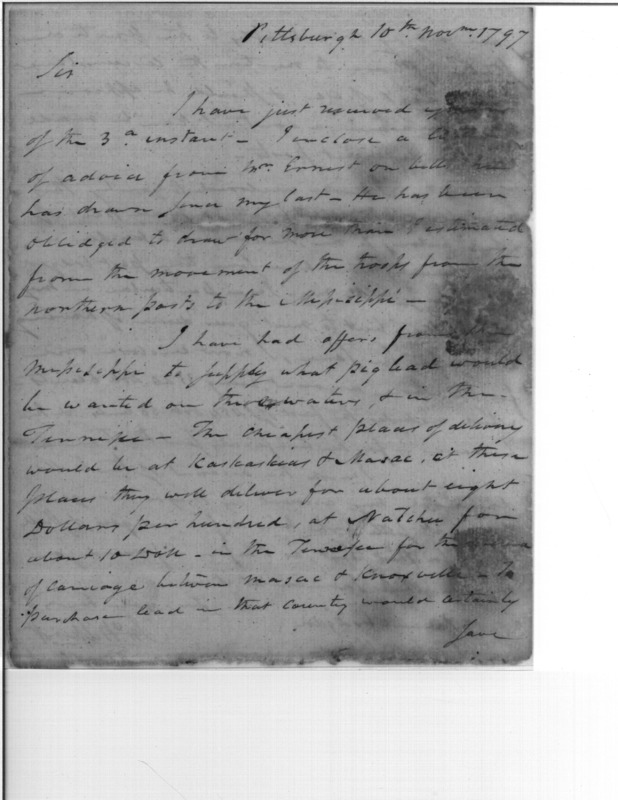 Pittsburgh 10th Novm. 1797
Sir
I have just received yours
of the 3d instant – I enclose a
of advice from Mr. Ernest on bills he
has drawn since my last – He has been
oblidged to draw for more than I estimated
from the movement of the troops from the
northern posts to the Missisippi –
I have had offers from the
Missisippi to supply what pig lead would
be wanted on these waters, & in the
Tennissee – The cheapest places of delivery
would be at Kaskaskias & Masac, at these
places they will deliver for about eight
Dollars per hundred, at Natchez for
about 10 Dolls – in the Tennessee for the
of carriage between Masac & Knoxville – To
purchase lead in that country would certainly
save